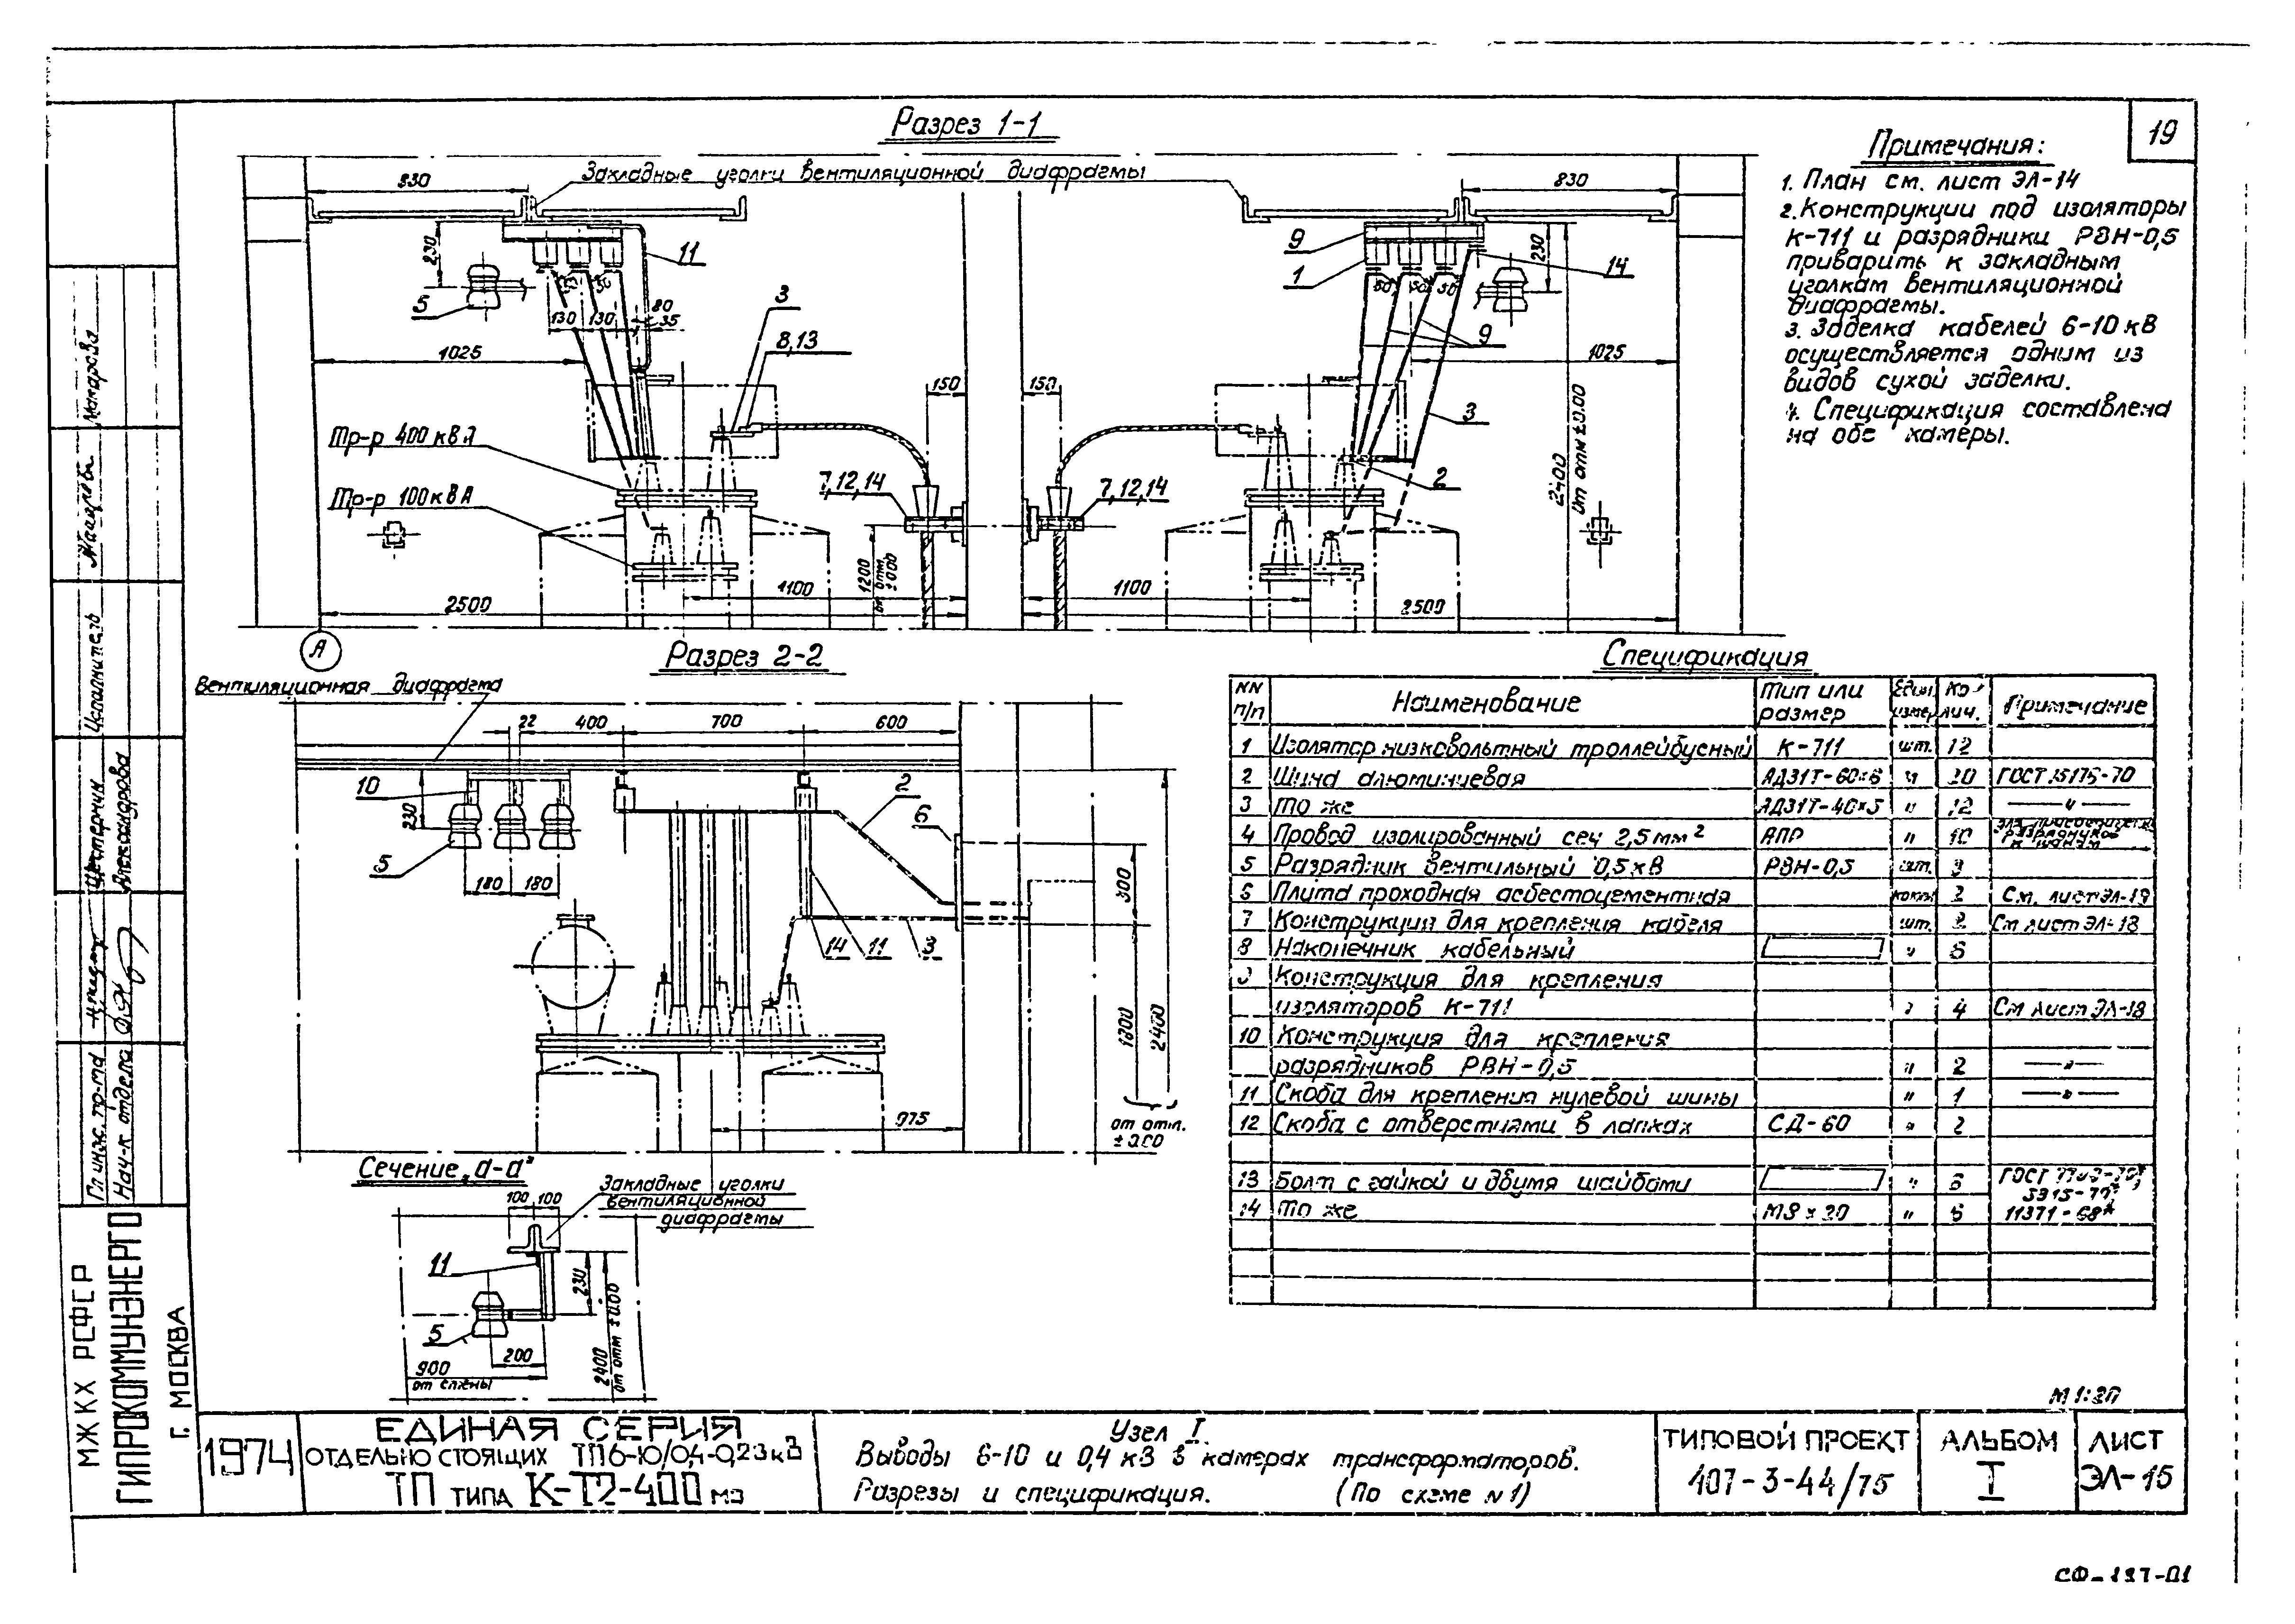 19
Разрез 1-1
Закладные уголки вентиляционной диафрагмы
830
830
230
11
5
50
50
130
130
80
35
3
8,13
1025
150
150
Тр-р 400 кВА
Тр-р 100 кВА
7,12,14
7,12,14
1200
от отм.
±0.00
1100
1100
2500
2500
А
9
1
50
50
50
14
230
9
3
2
1025
2400
от отм ±0.00
Примечания:
1. План см. лист ЭЛ-14
2. Конструкции под изоляторы
К-711 и разрядники РВН-0,5
приварить к закладным
уголкам вентиляционной
диафрагмы.
3. Заделка кабелей 6-10 кВ
осуществляется одним из
видов сухой заделки.
4. Спецификация составлена
на обе камеры.
Разрез 2-2
Вентиляционная диафрагма
22
400
700
600
10
230
5
180
180
2
6
14
11
3
300
1800
2400
975
от отм.
±0.00
Сечение „а-а"
100
100
Закладные уголки
вентиляционной
диафрагмы
11
5
230
200
900
от стены
2400
от отм ±0.00
Спецификация
NN п/п Наименование Тип или размер Един. измер Ко-лич. Примечание
1 Изолятор низковольтный троллейбусный К-711 шт. 12
2 Шина алюминиевая АД31Т-60×6 м 20 ГОСТ 15176-70
3 То же АД31Т-40×5 " 12 — " —
4 Провод изолированный сеч 2,5мм² АПР " 10 разрядников к шинам
5 Разрядник вентильный 0,5кВ РВН-0,5 шт.
6 Плита проходная асбестоцементная 2 См. лист ЭЛ-19
7 Конструкции для крепления кабеля шт. 2 См лист ЭЛ-18
8 Наконечник кабельный " 6
9 Конструкция для крепления
изоляторов К-711 " 4 См лист ЭЛ-18
10 Конструкция для крепления
разрядников РВН-0,5 " 2 — " —
11 Скоба для крепления нулевой шины " 1 — " —
12 Скоба с отверстиями в лапках СД-60 " 2
13 Болт с гайкой и двумя шайбами " 6 ГОСТ
14 То же М8×20 " 6 11371-68*
М 1:20
МЖКХ РСФСР
ГИПРОКОММУНЭНЕРГО
Г. МОСКВА
Гл инж. пр-та
Нач-к отдела
Шестернин
Александрова
Исполнитель
Макарова
1974
ЕДИНАЯ СЕРИЯ
ОТДЕЛЬНО СТОЯЩИХ ТП 6-10/0,4-0,23кВ
ТП ТИПА К-Т2-400 М3
Узел I.
Выводы 6-10 и 0,4 кВ в камерах трансформаторов.
Разрезы и спецификация. (По схеме N1)
ТИПОВОЙ ПРОЕКТ
407-3-44/75
АЛЬБОМ
I
ЛИСТ
ЭЛ-15
СФ-197-01